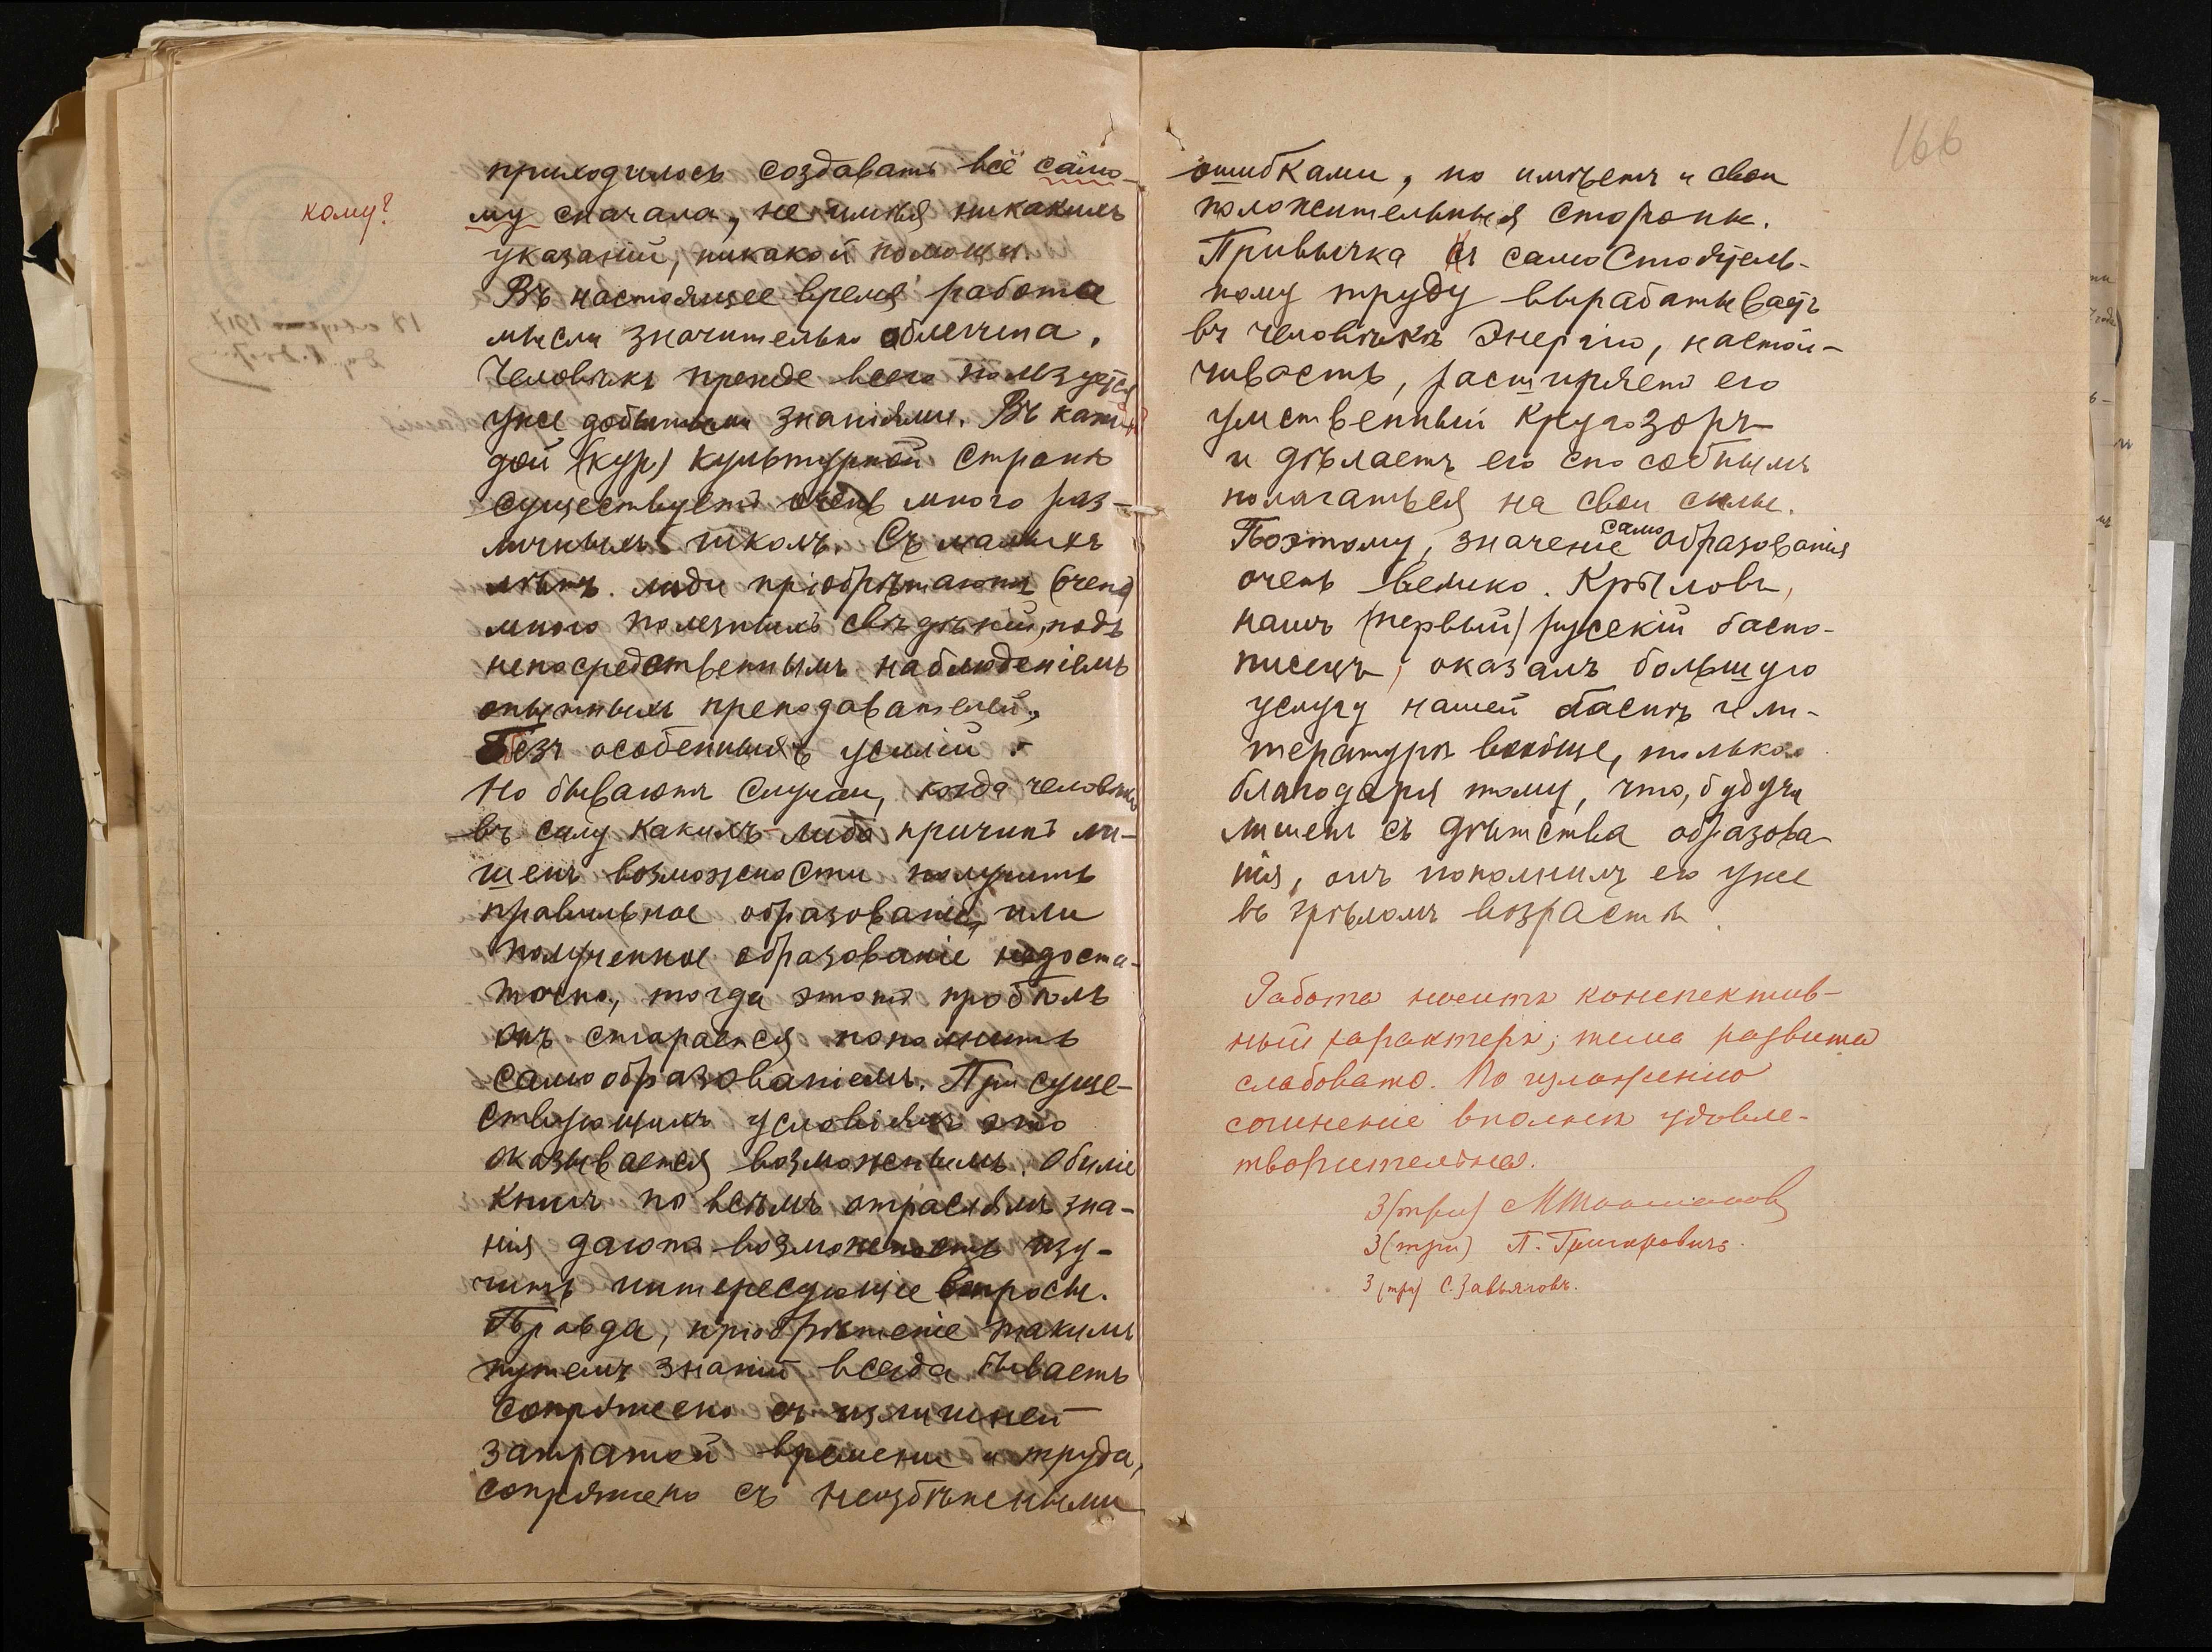 приходилось создавать всё само-
кому?
му сначала, не имѣя никакихъ
указаній, никакой помощи.
Въ настоящее время работа
мысли значительно облегчена.
Человѣкъ прежде всего пользуется
уже добытыми знаніями. Въ каж-
дой (кур) культурной странѣ
существуетъ очень много раз-
личныхъ школъ. Съ малыхъ
лѣтъ люди пріобрѣтаютъ (очень)
много полезныхъ свѣдѣній, подъ
непосредственнымъ наблюденіемъ
опытныхъ преподавателей,
безъ особенныхъ усилій.
Но бываютъ случаи, когда человѣкъ
въ силу какихъ-либо причинъ ли-
шенъ возможности получить
правильное образованіе, или
полученное образованіе недоста-
точно, тогда этотъ пробѣлъ
онъ старается пополнить
самообразованіемъ. При суще-
ствующихъ условіяхъ это
оказывается возможнымъ. Обиліе
книгъ по всѣмъ отраслямъ зна-
нія даютъ возможность изу-
чить интересующіе вопросы.
Правда, пріобрѣтеніе такимъ
путемъ знаній всегда бываетъ
сопряжено съ излишней
затратой времени и труда,
сопряжено съ неизбѣжными
166
ошибками, но имѣетъ и свои
положительныя стороны.
Привычка къ самостоятель-
ному труду вырабатываетъ
въ человѣкѣ энергію, настой-
чивость, расширяетъ его
умственный кругозоръ
и дѣлаетъ его способнымъ
полагаться на свои силы.
Поэтому, значеніе самообразованія
очень велико. Крыловъ,
нашъ (первый) русскій басно-
писецъ, оказалъ большую
услугу нашей баснѣ и ли-
тературѣ вообще, только
благодаря тому, что, будучи
лишенъ съ дѣтства образова-
нія, онъ пополнилъ его уже
въ зрѣломъ возрастѣ.
Работа носитъ конспектив-
ный характеръ; тема развита
слабовато. По изложенію
сочиненіе вполнѣ удовле-
творительно.
3 (три)
3 (три) П. Григоровичъ.
3 (три) С. Завьяловъ.